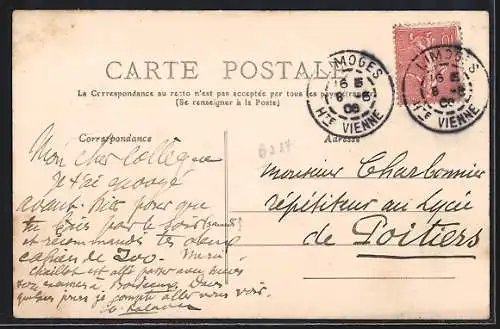 CARTE POSTALE
La Correspondance au recto n'est pas acceptée par tous les pays étrangers
(Se renseigner à la Poste)
LIMOGES
6 8
HTE VIENNE
LIMOGES
6 8
HTE VIENNE
Correspondance
Adresse
Mon cher Collègue
Je t'ai envoyé
avant-hier pour que
tu par le soir (samedi)
et recommandé tes deux
cahiers de 200. Merci
est allé passer avec succès
son examen à Bordeaux. Dans
quelques jours je compte aller vous voir.
Monsieur Charbonnier
répétiteur au Lycée
de Poitiers